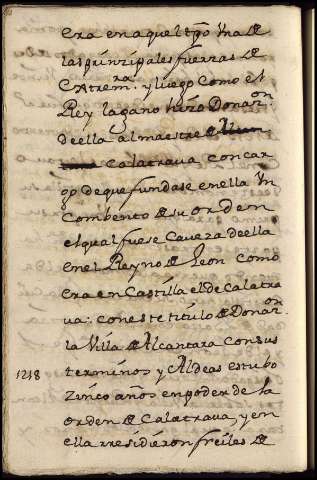 era en aquel tpo Vna de
las prinzipales fuerzas de
extremra. y luego como el
Rey la gano hizo Donaon
de ella al maestre de
Calatraua con car
go de que fundase en ella Vn
Combento de su orden
el qual fuese Caueza de ella
en el Reyno de Leon como
era en Castilla el de Calatra
ua: con este titulo de Donaon
la Villa de Alcantara con sus
1218 terminos y Aldeas estubo
zinco años en poder de la
orden de Calatraua, y en
ella rresidieron freiles de